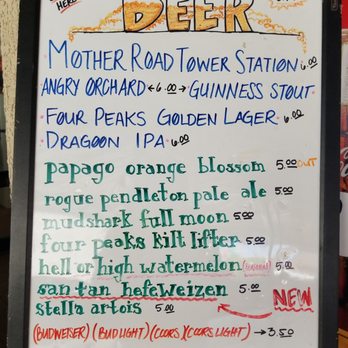 HERE
BEER
MOTHER ROAD TOWER STATION 6.00
ANGRY ORCHARD ←6.00→ GUINNESS STOUT
FOUR PEAKS GOLDEN LAGER 6.00
DRAGOON IPA 6.00
papago orange blossom 5.00 OUT
rogue pendleton pale ale 5.00
mudshark full moon 5.00
four peaks kilt lifter 5.00
hell or high watermelon (SEASONAL) 5.00
san tan hefeweizen 5.00 NEW
stella artois 5.00
(BUDWEISER) (BUD LIGHT) (COORS) (COORS LIGHT) → 3.50